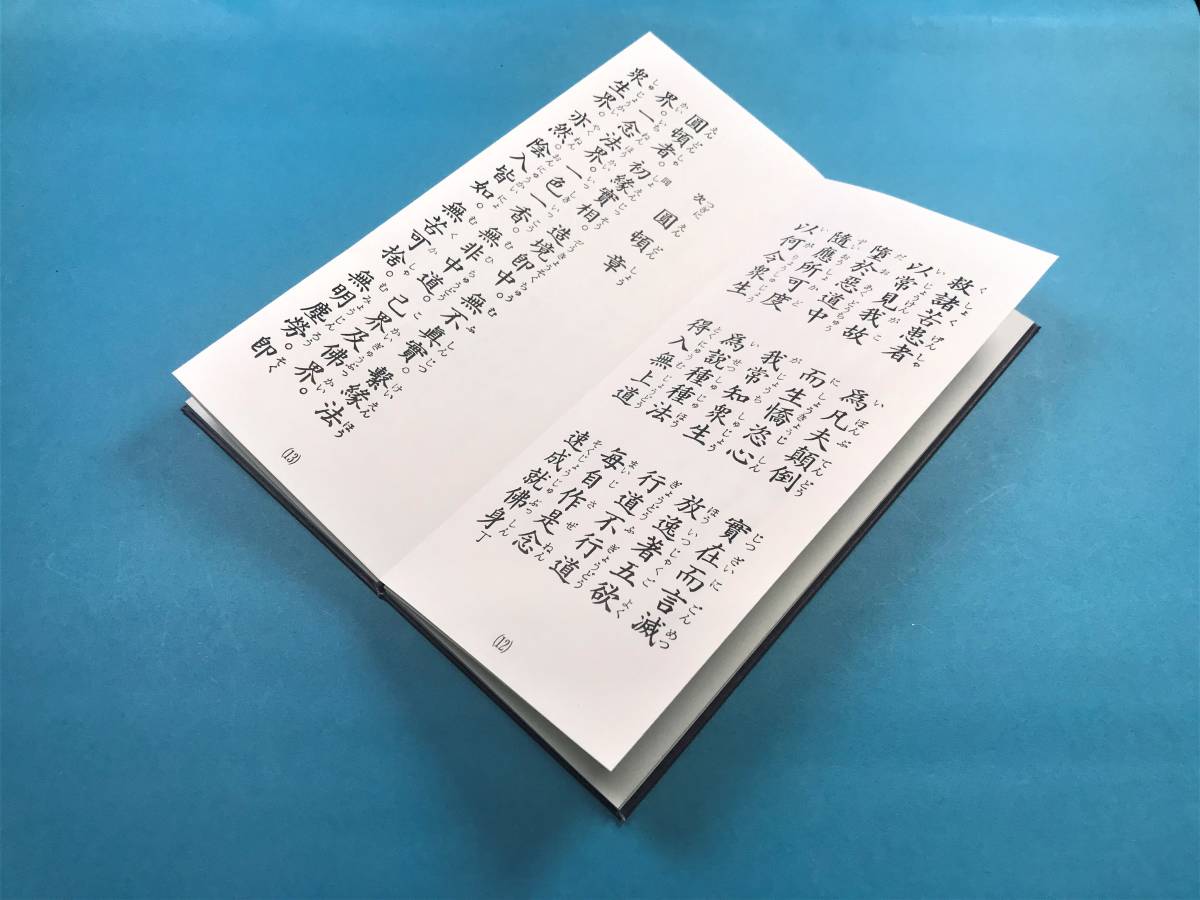 救諸苦患者 爲凡夫顛倒 實在而言滅
以常見我故 而生憍恣心 放逸著五欲
墮於惡道中 我常知衆生 行道不行道
隨應所可度 爲説種種法 毎自作是念
以何令衆生 得入無上道 速成就佛身丁
(12)
次 圓頓章
圓頓者。同 初緣實相。造境即中。無不眞實。繫緣法
界。一念法界。一色一香。無非中道。己界及佛界。
衆生界亦然。陰入皆如。無苦可捨。無明塵勞。即
(13)